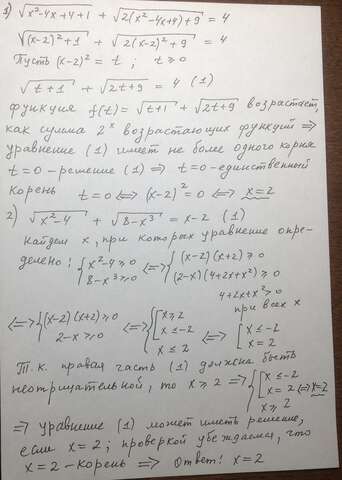 1) √(x²-4x+4+1) + √(2(x²-4x+4)+9) = 4
√((x-2)²+1) + √(2(x-2)²+9) = 4
Пусть (x-2)² = t ; t ≥ 0
√(t+1) + √(2t+9) = 4 (1)
функция f(t)= √(t+1) + √(2t+9) возрастает,
как сумма 2ˣ возрастающих функций ⇒
уравнение (1) имет не более одного корня
t=0 - решение (1) ⇒ t=0 - единственный
корень t=0 ⇔ (x-2)²=0 ⇔ x=2
2) √(x²-4) + √(8-x³) = x-2 (1)
Найдем x, при которых уравнение опре-
делено: { x²-4 ≥ 0 ⇔ { (x-2)(x+2) ≥ 0
8-x³ ≥ 0 (2-x)(4+2x+x²) ≥ 0
4+2x+x² > 0
при всех x
⇔ { (x-2)(x+2) ≥ 0 ⇔ { [ x ≥ 2 ⇔ [ x ≤ -2
2-x ≥ 0 x ≤ -2 x = 2
x ≤ 2
Т.к. правая часть (1) должна быть
неотрицательной, то x ≥ 2 ⇒ { [ x ≤ -2
x = 2 ⇔ x=2
x ≥ 2
⇒ уравнение (1) может иметь решение,
если x = 2; проверкой убеждаемся, что
x = 2 - корень ⇒ Ответ: x = 2